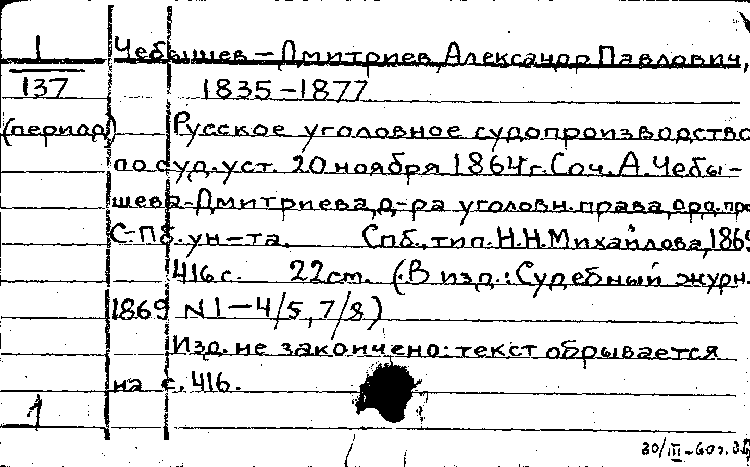 1 Чебышев-Дмитриев, Александр Павлович,
137 1835-1877
(период) Русское уголовное судопроизводство
по суд. уст. 20 ноября 1864 г. Соч. А. Чебы-
шева-Дмитриева, д-ра уголовн. права, орд. про
С-Пб. ун-та. Спб., тип. Н.Н. Михайлова, 1869
416 с. 22 см. (В изд.: Судебный журн.
1869 N1-4/5, 7/8)
Изд. не закончено: текст обрывается
на с. 416.
1
30/III-60г.